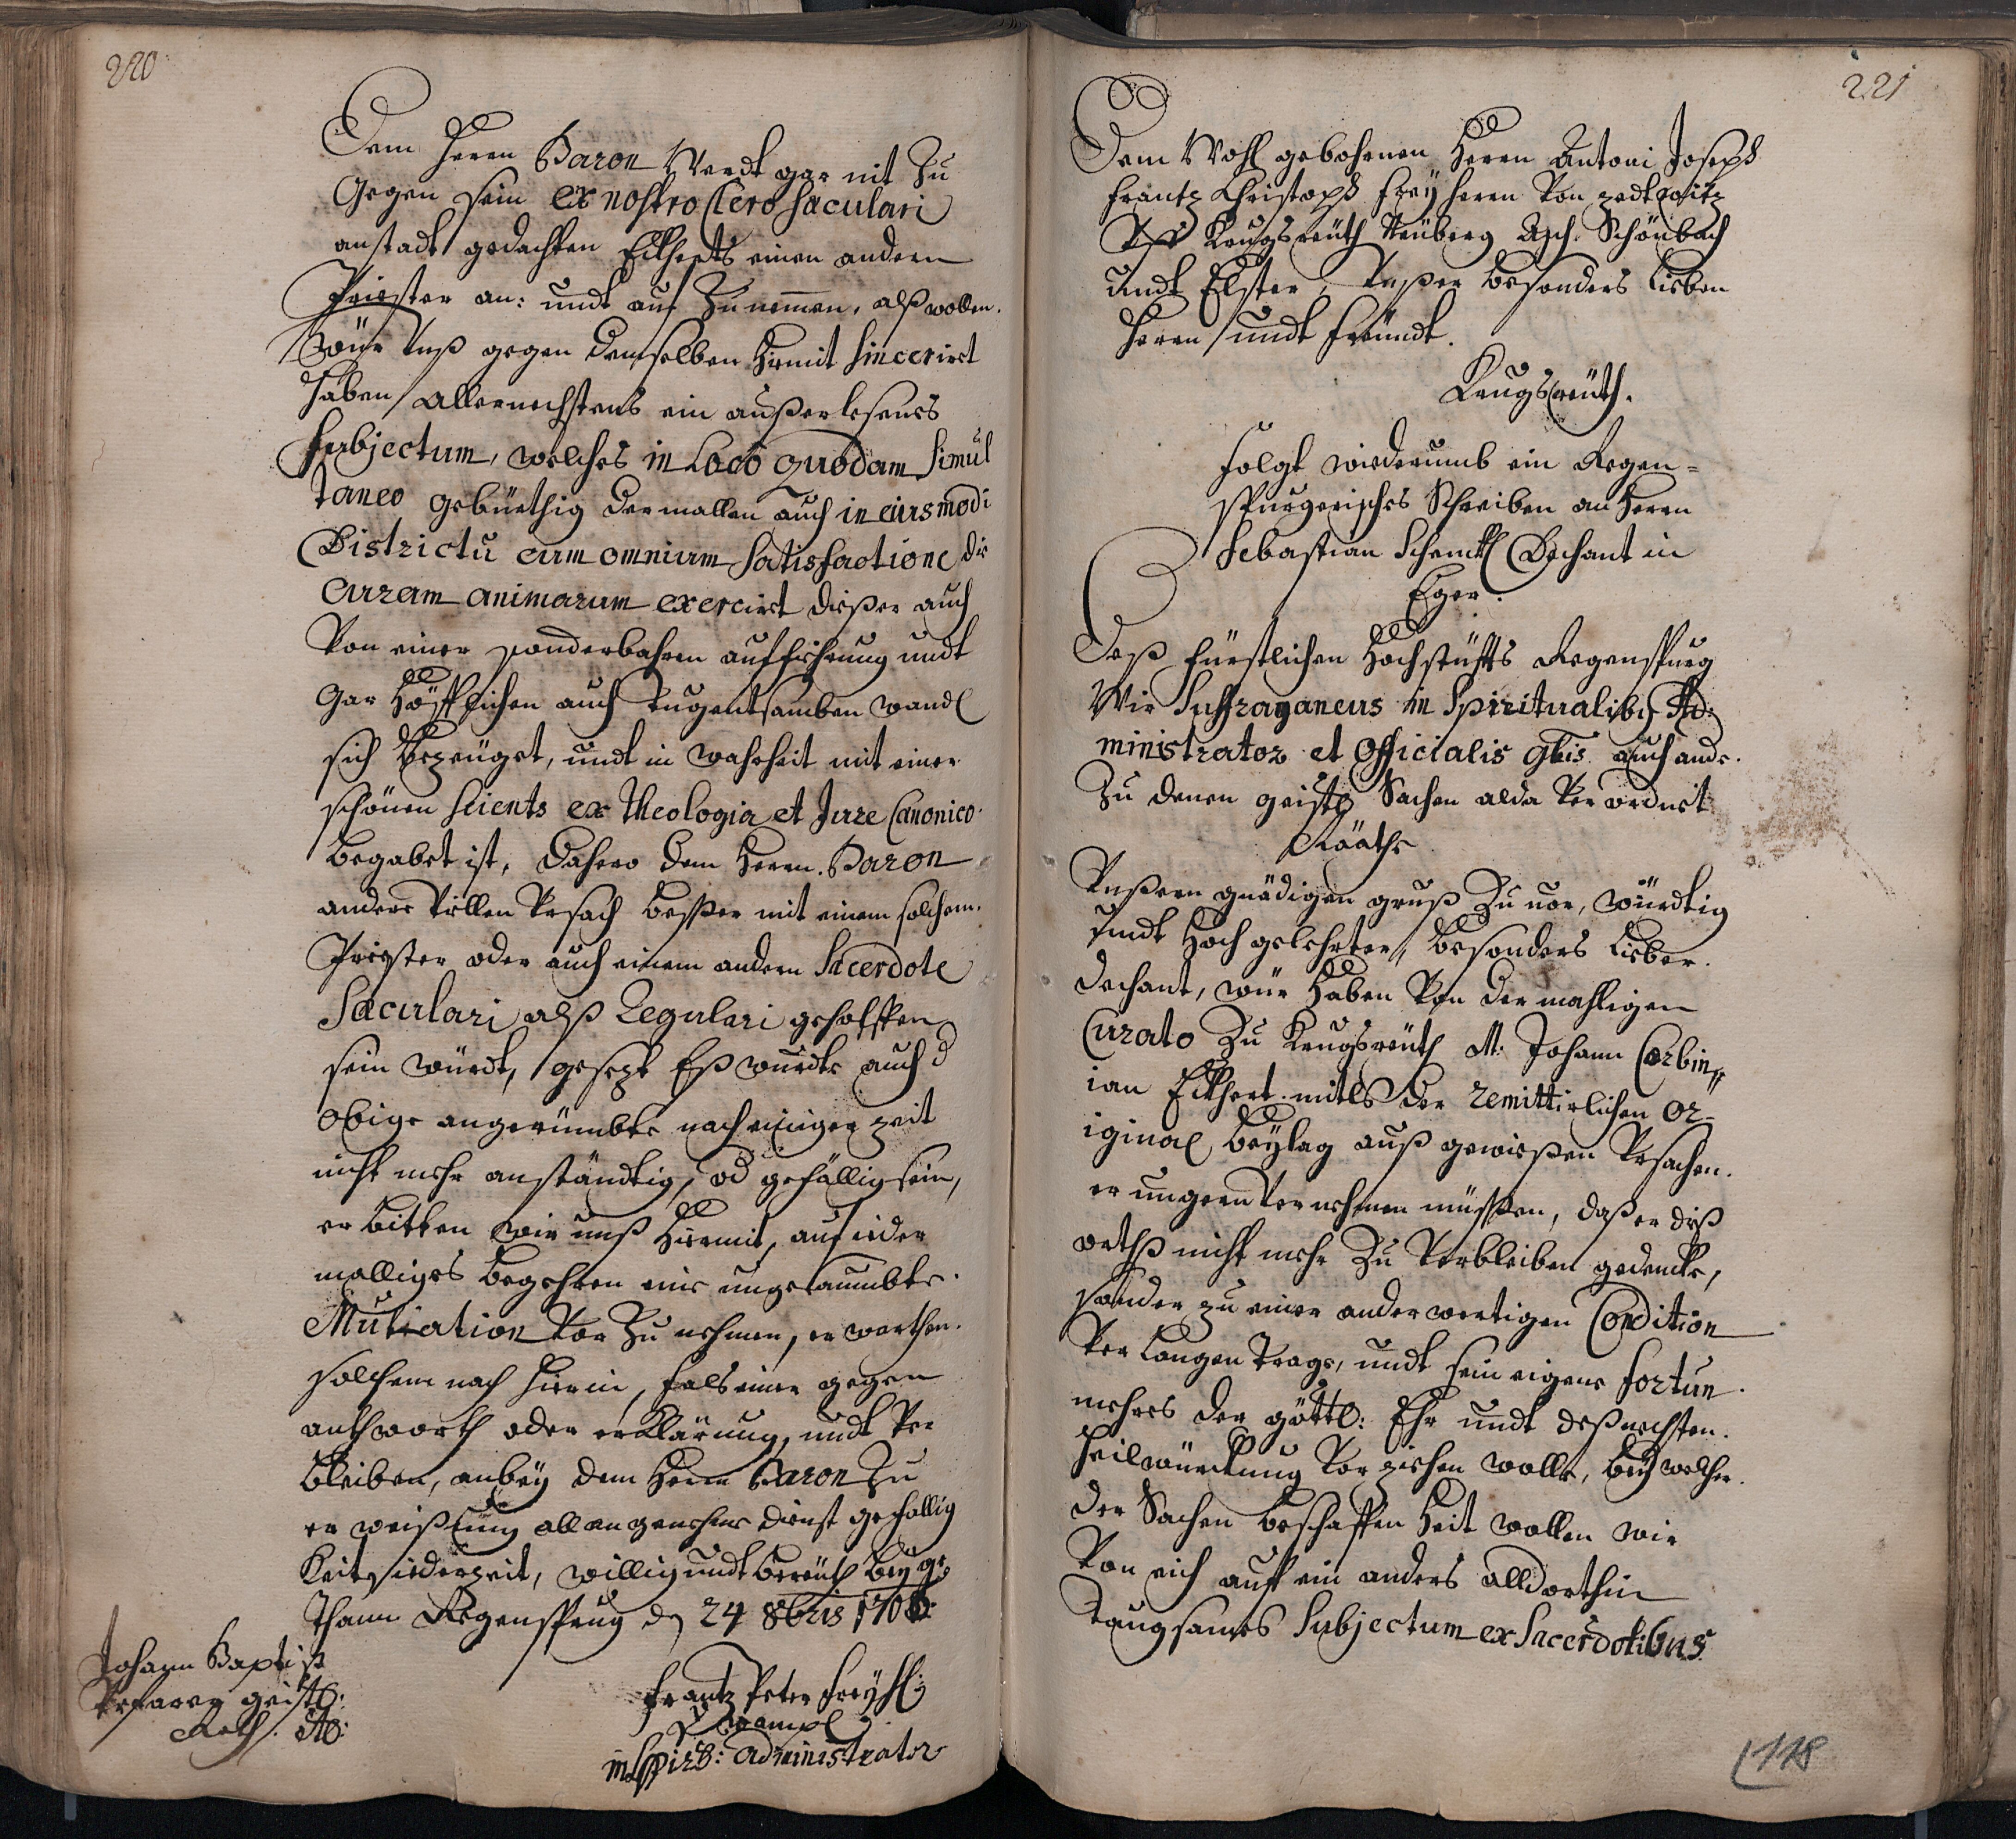 220
Dem Herrn Baron Werdt gar nit Zu
Gegen sein ex nostro Clero Saculari
anstadt gedachten Eckherts einen andern
Priester an: undt auf Zunemmen, alß wollen
Wür Vnß gegen demselben hiemit sincerirt
haben allernechstens ein außerlesenes
Subjectum, welches in Loco quodam Simul
taneo gebürthig dermallen auch in eiusmodi
Districtu cum omnium Satisfactione die
Curam animarum exercirt dißer auch
Von einer sonderbahren aufführung undt
Gar höfflichen auch tugentsamben wandl
sich bezeuget, undt in wahrheit mit einer
schönen Scients ex Theologia et Jure Canonico
begabet ist, dahero dem Herrn Baron
andere Villen Vrsach besser mit einem solchem
Priester oder auch einem andern Sacerdote
Sæculari alß Regulari geholffen
sein würdt, gesezt Eß wurdte auch d
obige angerümbte nach einiger zeit
nicht mehr anständtig, od gefällig sein,
erbitten wir unß hiermit, auf ieder
malliges begehren eine ungesaumbte
Mutation Vor Zu nehmen, erwarthen
solchem nach hierin, fals einer gegen
anthworth oder erklärung, undt Ver
bleiben, anbey dem Herrn Baron Zu
erweißung all angenehmer dienst gefällig
Keit iederzeit, willig undt bereith beyge
Thann Regenspurg d 24 8bris 1706
Johann Baptist
geistl:
Rath
Frantz Peter Freyh:
V Wampl
in Spirb: Administrator
221
Dem Wohl gebohrnen Herrn Antoni Joseph
Frantz Christoph Freyherrn Von zedtwitz
Vff Krugsreuth Neuberg Asch Schönbach
undt Elster, Vnßer besonders Lieben
Herrn undt Freundt.
Krugsreuth.
Folgt wiederumb ein Regen=
spurgerisches Schreiben an Herrn
Sebastian Schenckl Dechant in
Eger.
Deß Fürstlichen Hochstüfts Regenspurg
Wir Suffraganeus in Spiritualibg Ad:
ministrator et Officialis glis auch andr
Zu denen geistl Sachen alda Verordnet
Rääthe
Vnßern gnädigen gruß Zuuor, würdtig
undt Hoch gelehrter, besonders Lieber
dechant, wür haben Von der mahligen
Curato Zu Krugsreuth M: Johann Corbin
ian Eckhert mitls der remittirlichen Or=
iginal beylag auß gewissen Vrsachen
er ungern Vernehmen müssen, daß er diß
orthß nicht mehr Zu Verbleiben gedencke,
sonder zu einer anderwertigen Condition
Verlangen trage, undt sein eigene Fortun
mehrers der göttl: Ehr undt deß nechsten
heilwürckung Vorziehen wolle, bey welcher
der Sachen beschaffenheit wollen wir
Von eich auff ein anders alldorthin
taugsames Subjectum ex Sacerdotibus
118